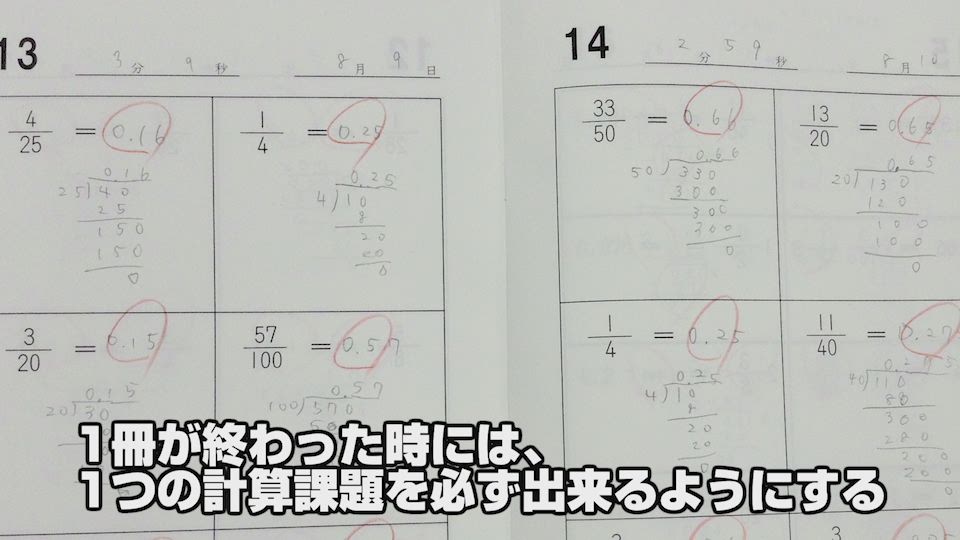 13
3分 9秒
8月 9日
4/25 = 0.16
0.16
25)40
25
150
150
0
1/4 = 0.25
0.25
4)10
8
20
20
0
3/20 = 0.15
0.15
20)30
57/100 = 0.57
0.57
100)570
14
2分59秒
8月10
33/50 = 0.66
0.66
50)330
300
300
300
0
13/20 = 0.65
0.65
20)130
120
100
100
0
1/4 = 0.25
0.25
4)10
8
20
20
0
11/40 = 0.27
0.275
40)110
80
300
280
200
200
0
1冊が終わった時には、
1つの計算課題を必ず出来るようにする